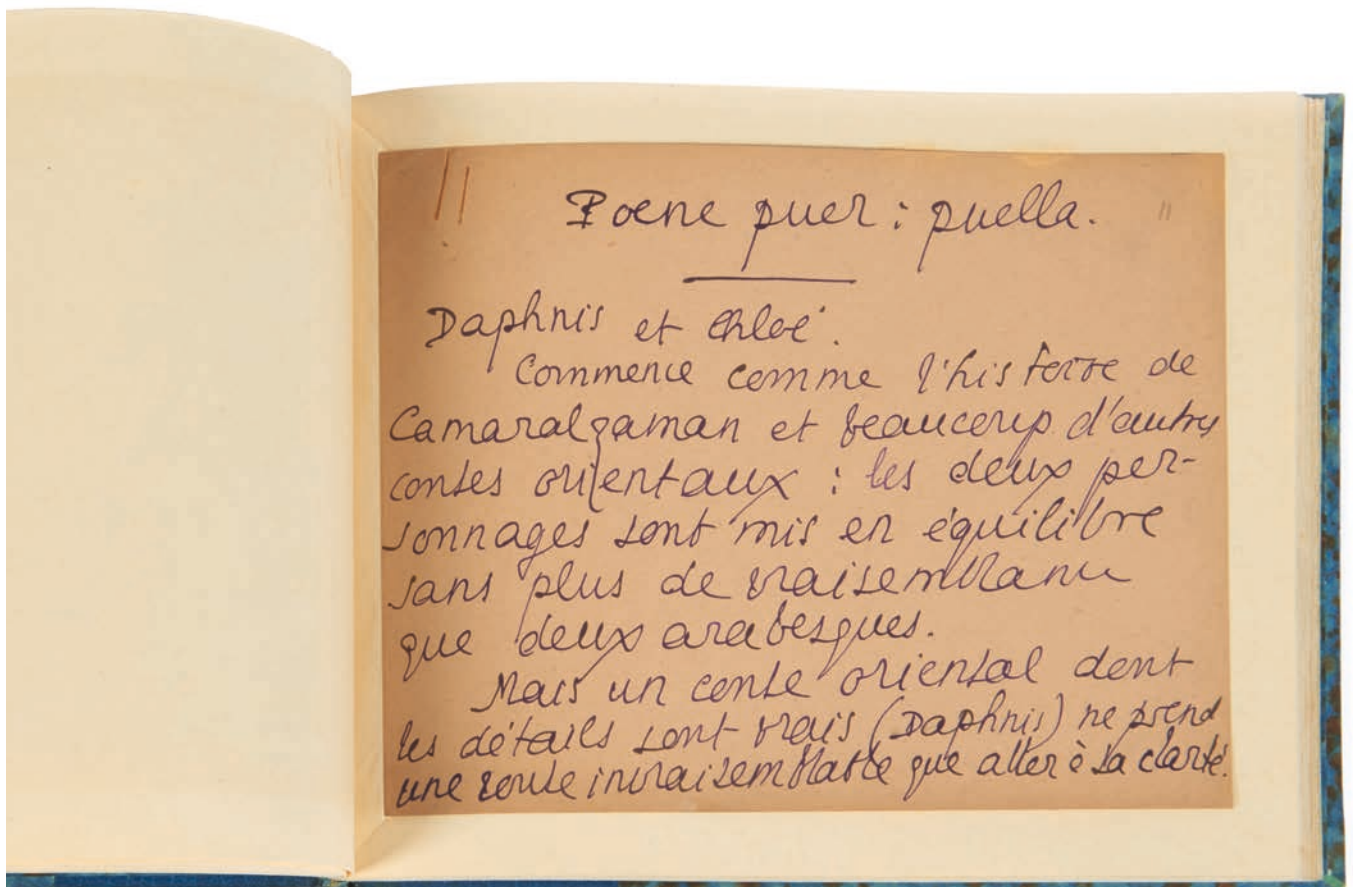 11
Poene puer : puella.
11
Daphnis et Chloé.
Commence comme l'histoire de
Camaralzaman et beaucoup d'autres
contes orientaux : les deux per-
sonnages sont mis en équilibre
sans plus de vraisemblance
que deux arabesques.
Mais un conte oriental dont
les détails sont vrais (Daphnis) ne prend
une route invraisemblable que aller à sa clarté.